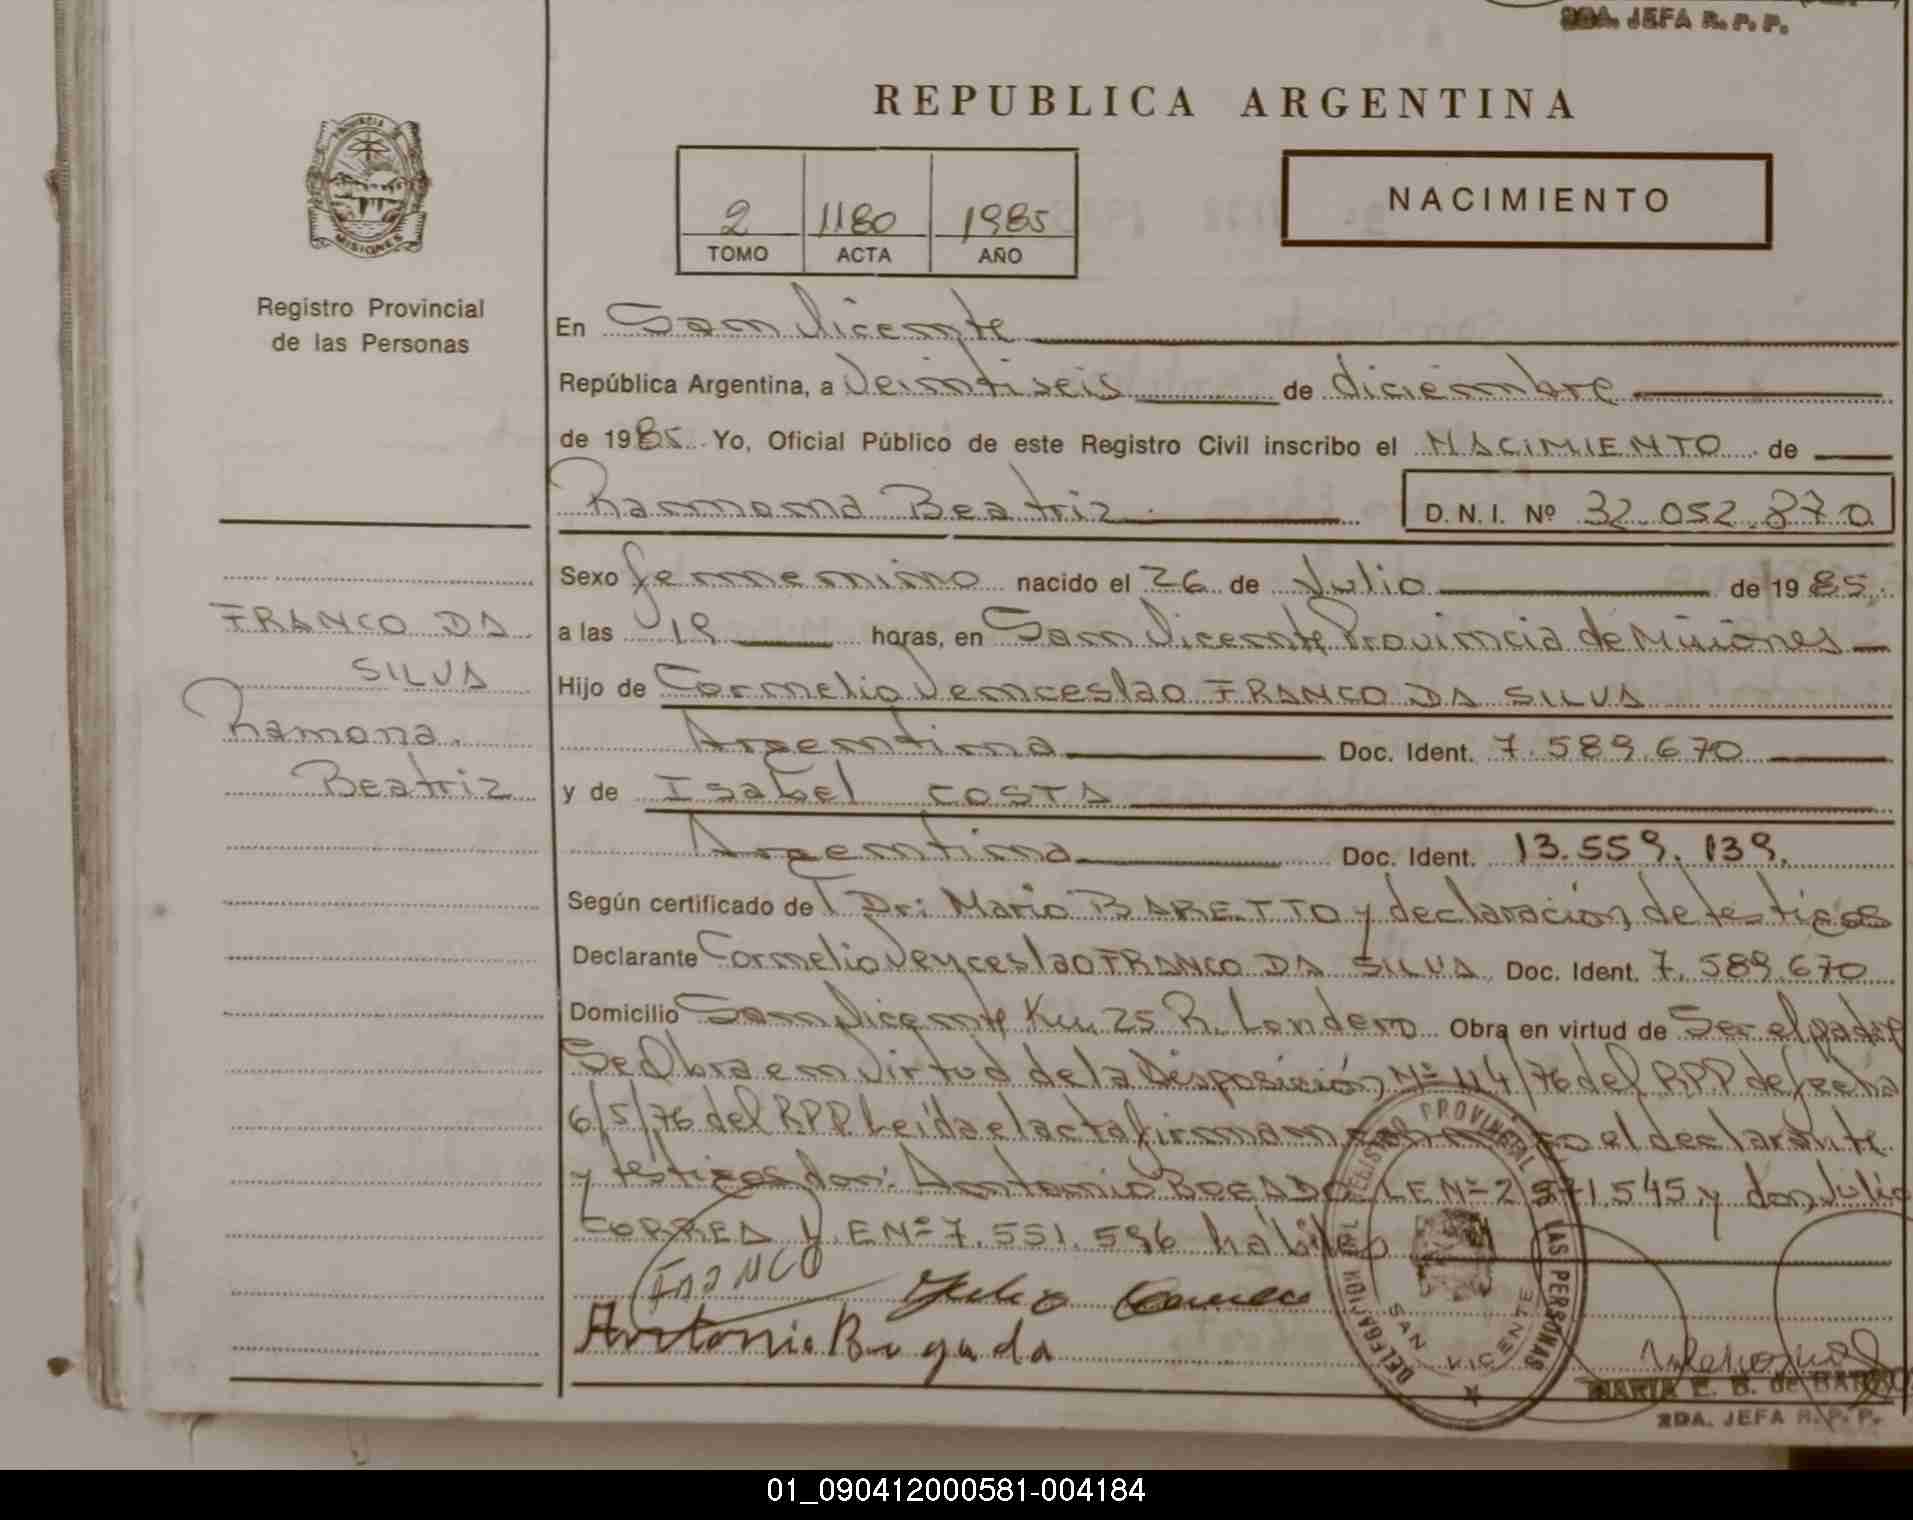 2DA. JEFA R. P. P.
REPUBLICA ARGENTINA
PROVINCIA DE
MISIONES
Registro Provincial
de las Personas
2 1180 1985
TOMO ACTA AÑO
NACIMIENTO
En San Vicente
República Argentina, a Veintiseis de diciembre
de 1985 Yo, Oficial Público de este Registro Civil inscribo el NACIMIENTO de
Ramona Beatriz D.N.I. Nº 32.052.870
Sexo femenino nacido el 26 de Julio de 1985.
FRANCO DA
SILVA
Ramona
Beatriz
a las 19 horas, en San Vicente Provincia de Misiones
Hijo de Cornelio Venceslao FRANCO DA SILVA
Argentina Doc. Ident. 7.589.670
y de Isabel COSTA
Argentina Doc. Ident. 13.559.139.
Según certificado de Dr: Mario BARETTO y declaración de testigos
Declarante Cornelio Venceslao FRANCO DA SILVA Doc. Ident. 7.589.670
Domicilio San Vicente Km. 25 R. Londero Obra en virtud de Ser el padre
Se Obra en Virtud de la Disposición Nº 114/76 del RPP de fecha
6/5/76 del RPP Leída el acta firman el declarante
y testigos don: Antonio BOGADO LE Nº 2 .545 y don Julio
CORREA L.E Nº 7.551.596 habiles
FRANCO Julio Correa
Antonio Bogado
DELEGACION DEL REGISTRO PROVINCIAL DE LAS PERSONAS
SAN VICENTE
MARIA E. B. de
2DA. JEFA R. P. P.
01_090412000581-004184